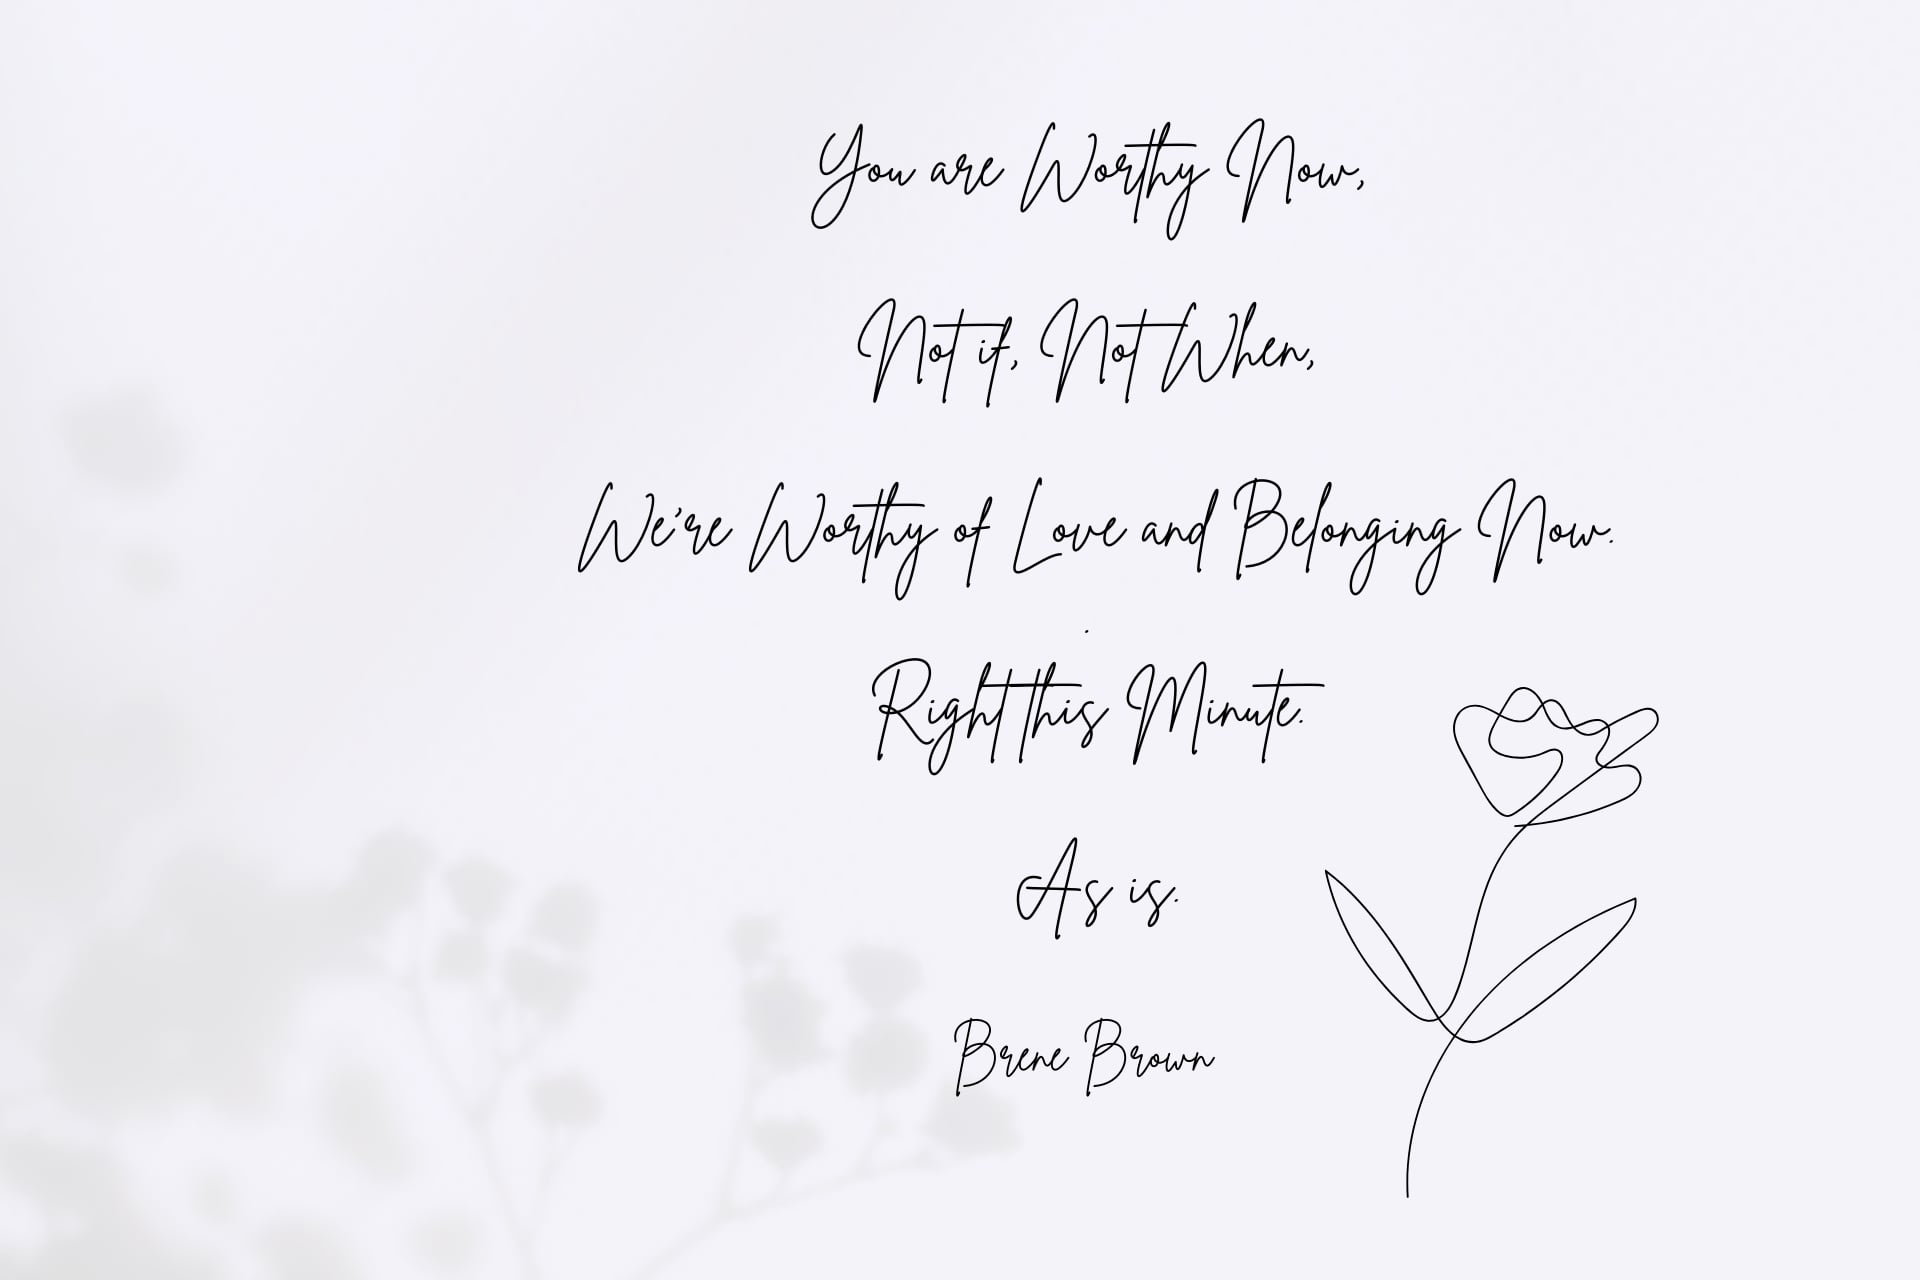 You are Worthy Now,
Not if, Not When,
We're Worthy of Love and Belonging Now.
Right this Minute.
As is.
Brene Brown